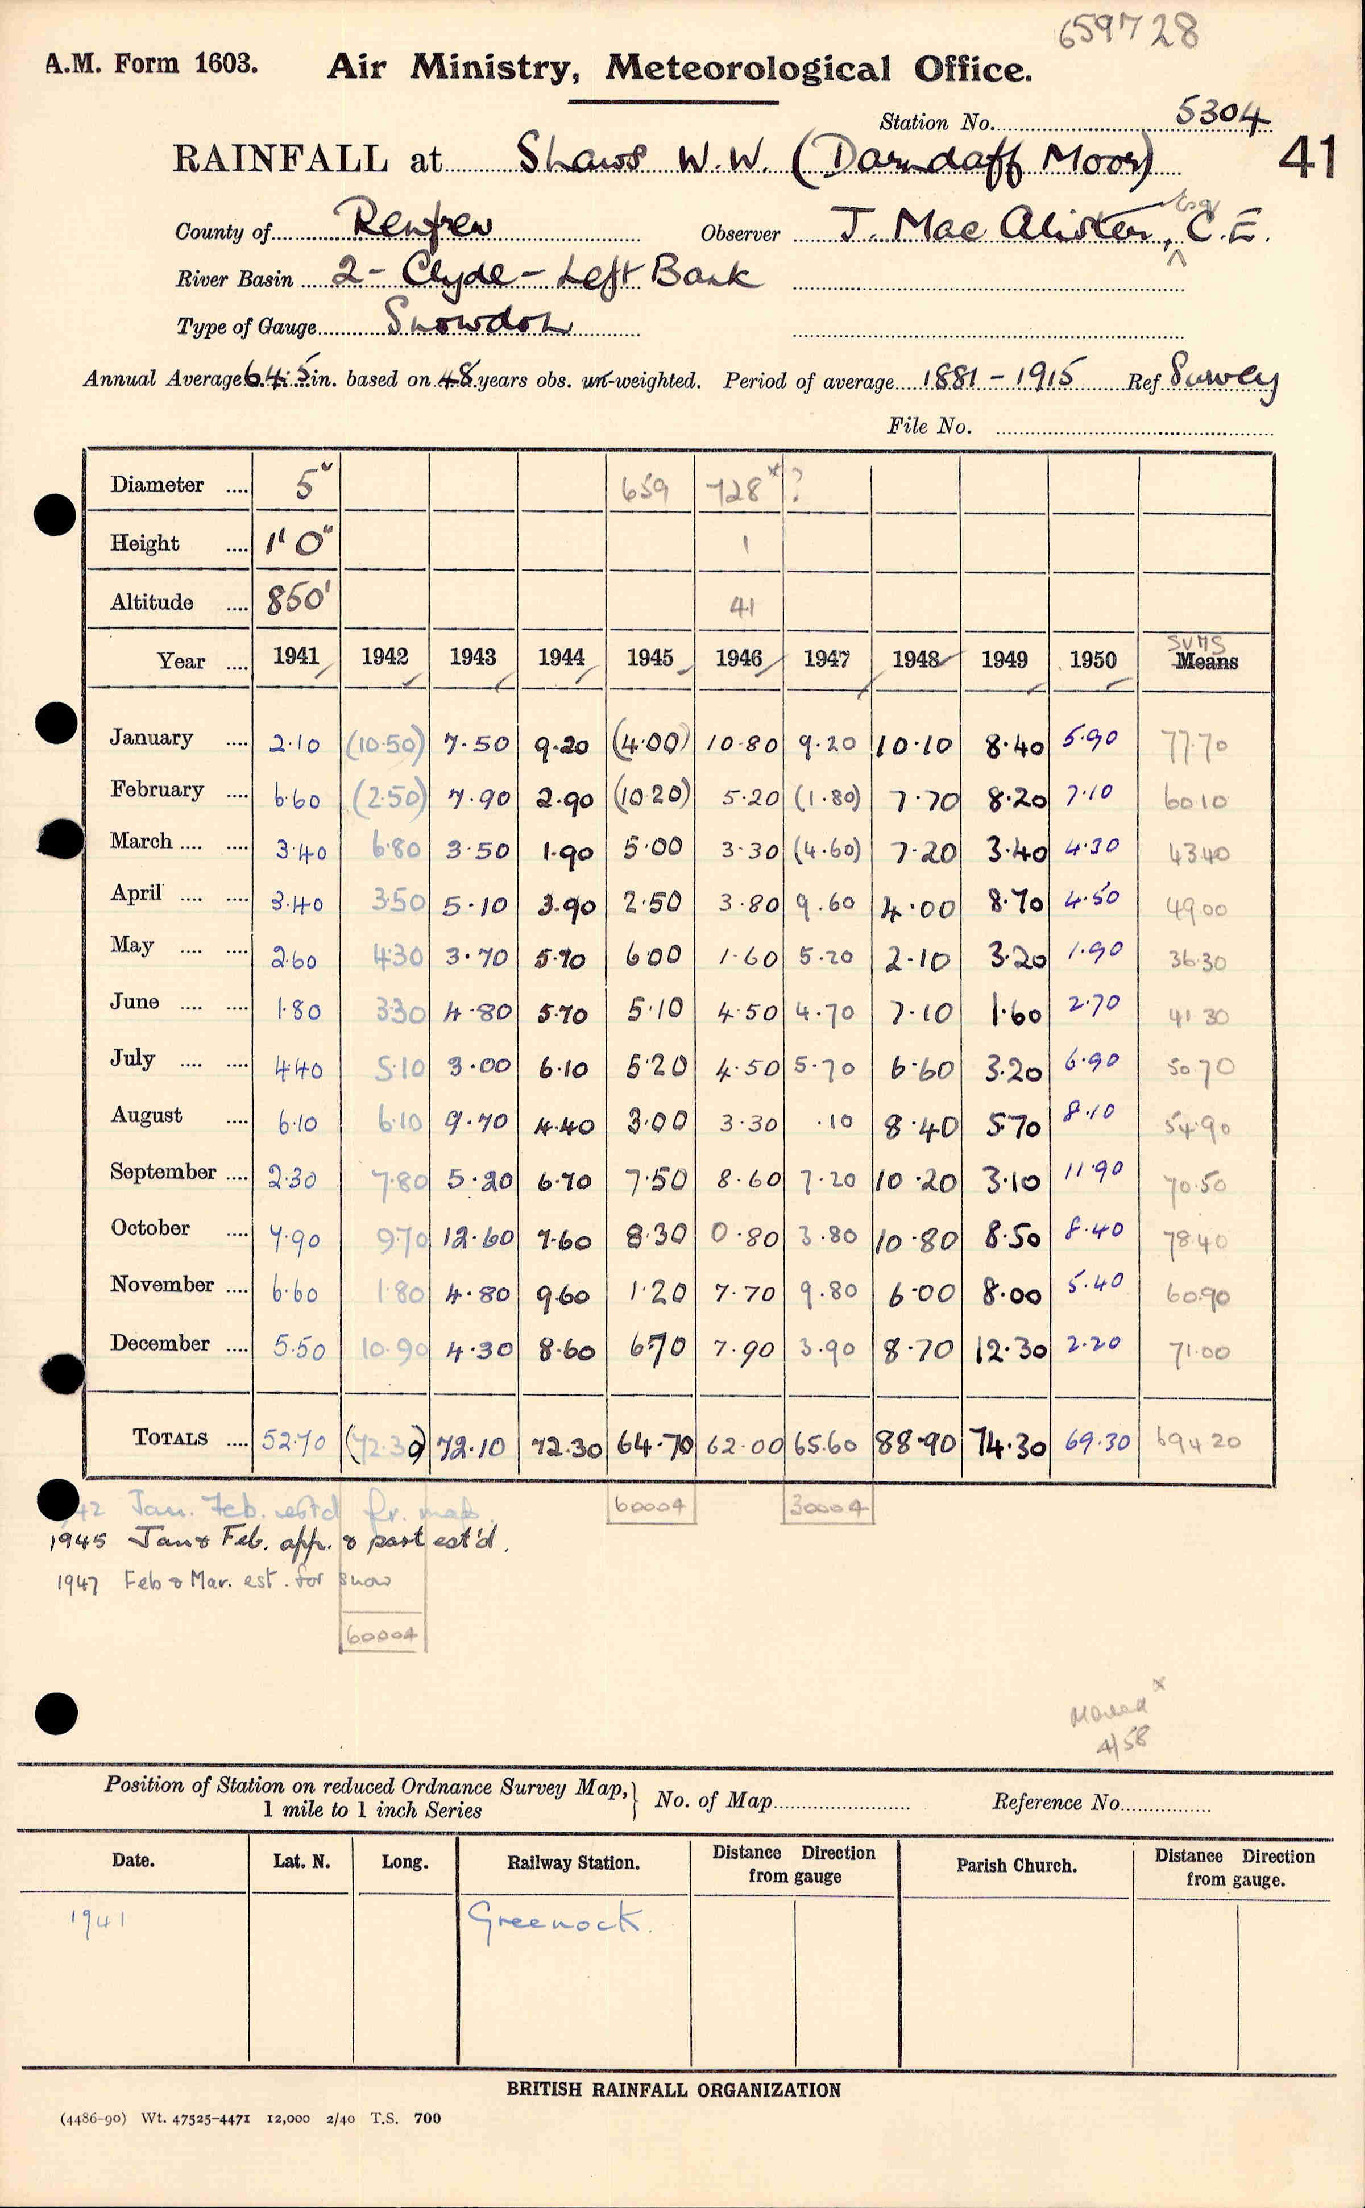 659728
A.M. Form 1603. Air Ministry, Meteorological Office.
Station No. 5304
RAINFALL at Shaws W.W. (Darndaff Moor) 41
County of Renfrew Observer J. Mac Alister, Esq C.E.
River Basin 2 - Clyde - Left Bank
Type of Gauge Snowdon
Annual Average 64.5 in. based on 48 years obs. un-weighted. Period of average 1881 - 1915 Ref Survey
File No.
Diameter .... 5" 659 728* ?
Height .... 1' 0" 1
Altitude .... 850' 41
Year .... 1941 1942 1943 1944 1945 1946 1947 1948 1949 1950 SUMS Means
January .... 2.10 (10.50) 7.50 9.20 (4.00) 10.80 9.20 10.10 8.40 5.90 77.70
February .... 6.60 (2.50) 7.90 2.90 (10.20) 5.20 (1.80) 7.70 8.20 7.10 60.10
March .... .... 3.40 6.80 3.50 1.90 5.00 3.30 (4.60) 7.20 3.40 4.30 43.40
April .... .... 3.40 3.50 5.10 3.90 2.50 3.80 9.60 4.00 8.70 4.50 49.00
May .... .... 2.60 4.30 3.70 5.70 6.00 1.60 5.20 2.10 3.20 1.90 36.30
June .... .... 1.80 3.30 4.80 5.70 5.10 4.50 4.70 7.10 1.60 2.70 41.30
July .... .... 4.40 5.10 3.00 6.10 5.20 4.50 5.70 6.60 3.20 6.90 50.70
August .... 6.10 6.10 9.70 4.40 3.00 3.30 .10 8.40 5.70 8.10 54.90
September .... 2.30 7.80 5.20 6.70 7.50 8.60 7.20 10.20 3.10 11.90 70.50
October .... 7.90 9.70 12.60 7.60 8.30 0.80 3.80 10.80 8.50 8.40 78.40
November .... 6.60 1.80 4.80 9.60 1.20 7.70 9.80 6.00 8.00 5.40 60.90
December .... 5.50 10.90 4.30 8.60 6.70 7.90 3.90 8.70 12.30 2.20 71.00
TOTALS .... 52.70 (72.30) 72.10 72.30 64.70 62.00 65.60 88.90 74.30 69.30 694 20
42 Jan. Feb. est'd fr. map. 60004 30004
1945 Jan & Feb. app. & part est'd.
1947 Feb & Mar. est. for snow
60004
Moved *
4/58
Position of Station on reduced Ordnance Survey Map, } No. of Map Reference No.
1 mile to 1 inch Series
Date. Lat. N. Long. Railway Station. Distance Direction from gauge Parish Church. Distance Direction from gauge.
1941 Greenock.
BRITISH RAINFALL ORGANIZATION
(4486-90) Wt. 47525-4471 12,000 2/40 T.S. 700